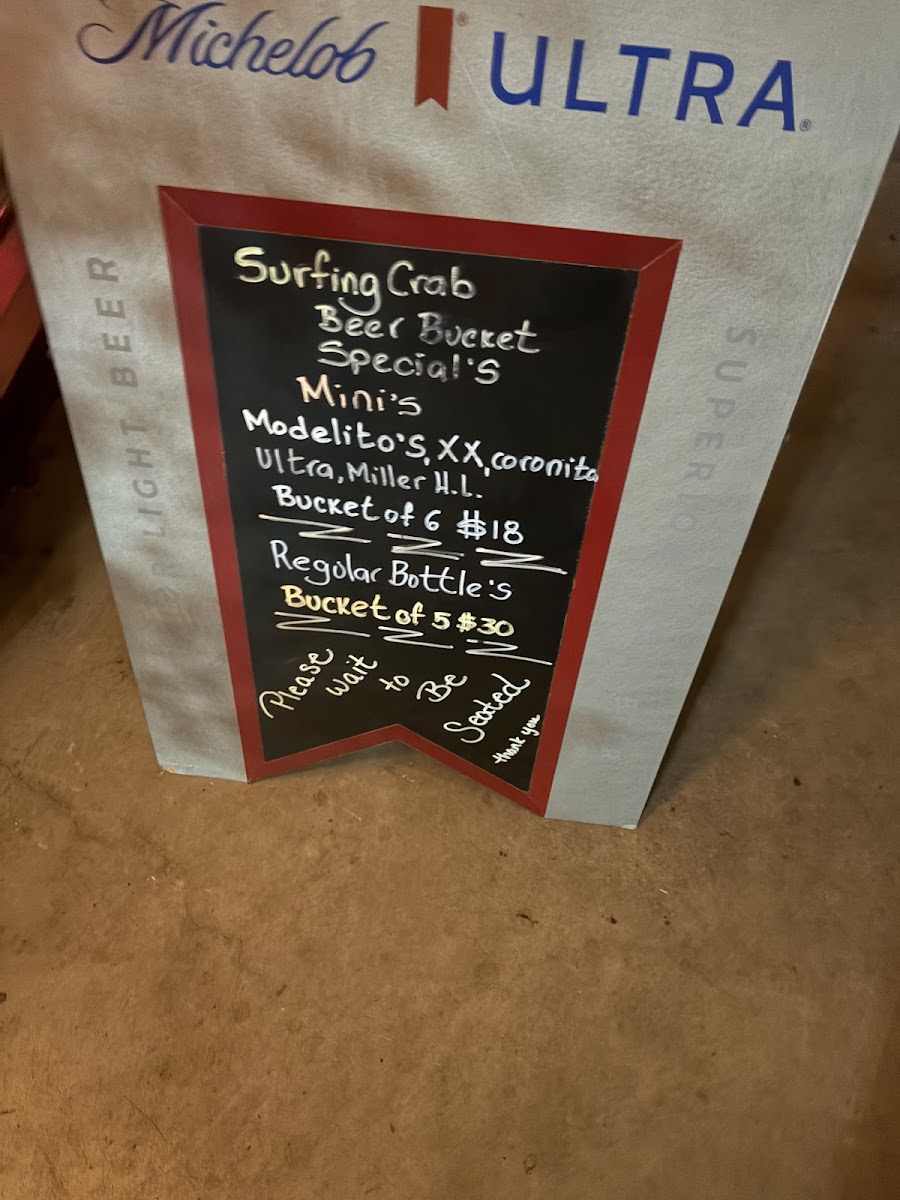 Michelob ULTRA
LIGHT BEER
SUPERIOR
Surfing Crab
Beer Bucket
Special's
Mini's
Modelito's, XX, coronita
Ultra, Miller H.L.
Bucket of 6 $18
Regular Bottle's
Bucket of 5 $30
Please wait to Be Seated
thank you